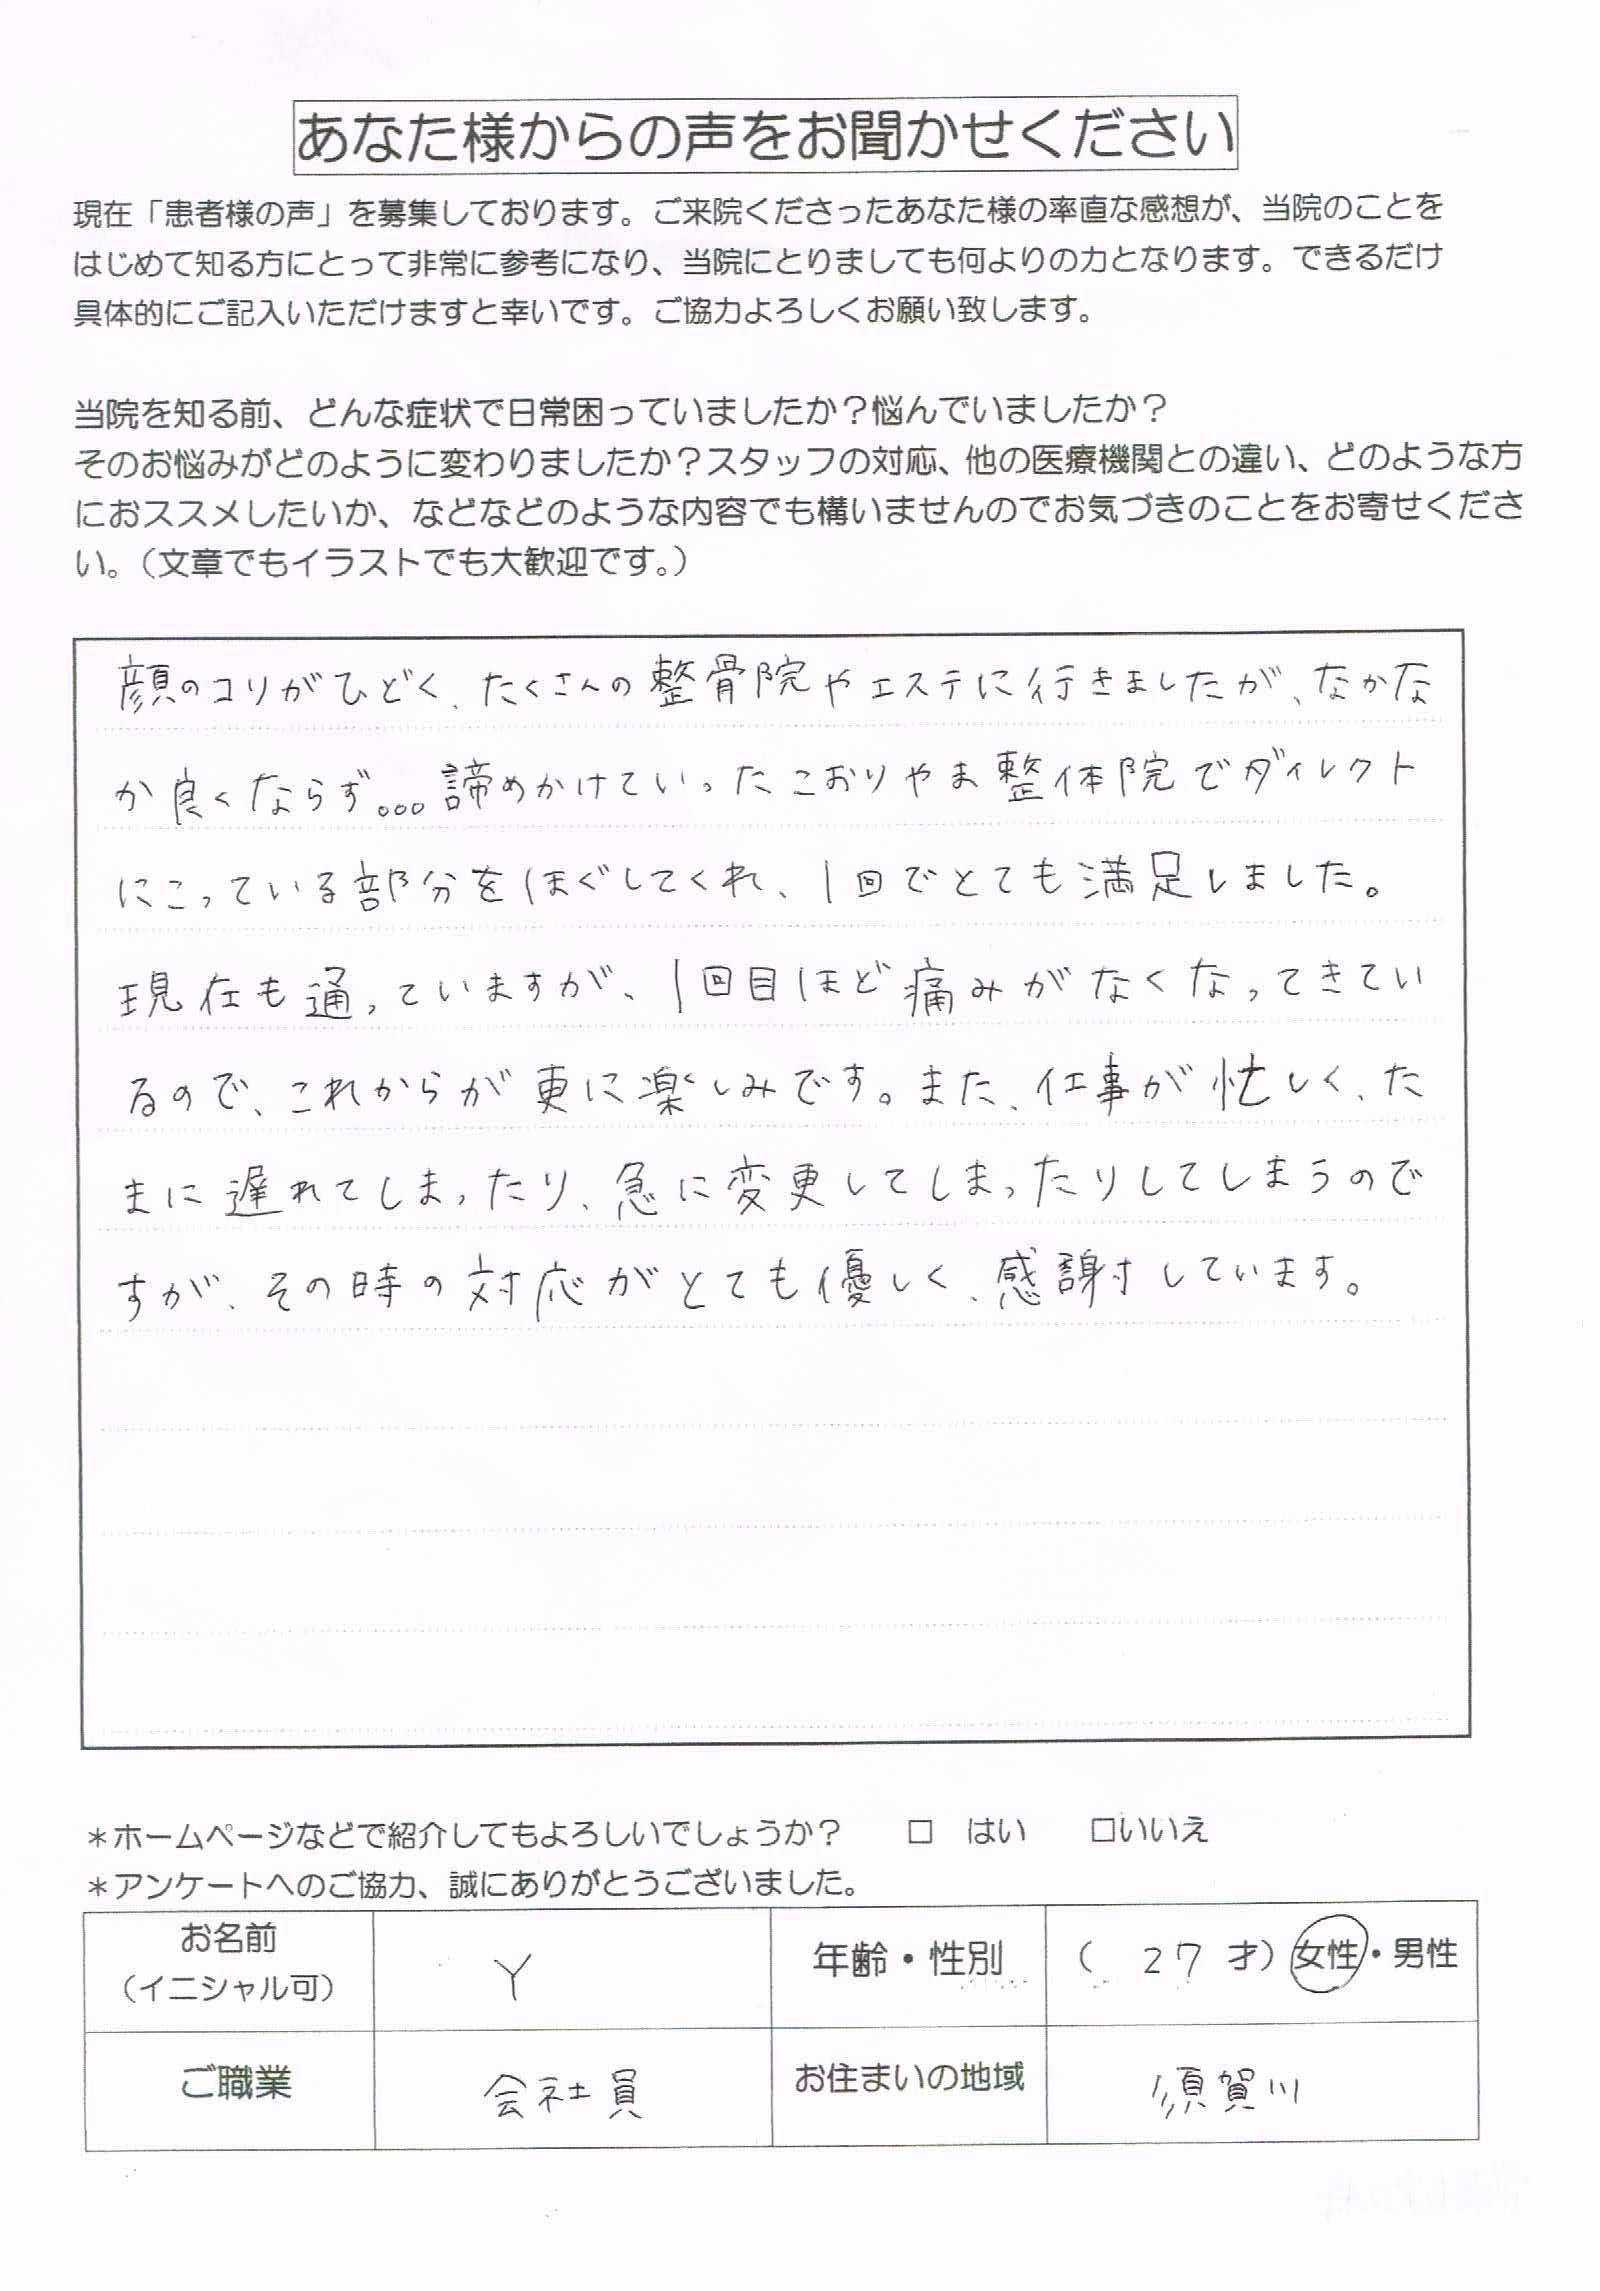 あなた様からの声をお聞かせください
現在「患者様の声」を募集しております。ご来院くださったあなた様の率直な感想が、当院のことを
はじめて知る方にとって非常に参考になり、当院にとりましても何よりの力となります。できるだけ
具体的にご記入いただけますと幸いです。ご協力よろしくお願い致します。
当院を知る前、どんな症状で日常困っていましたか?悩んでいましたか?
そのお悩みがどのように変わりましたか?スタッフの対応、他の医療機関との違い、どのような方
におススメしたいか、などなどのような内容でも構いませんのでお気づきのことをお寄せくださ
い。(文章でもイラストでも大歓迎です。)
顔のコリがひどく、たくさんの整骨院やエステに行きましたが、なかな
か良くならず。。。諦めかけていったこおりやま整体院でダイレクト
にこっている部分をほぐしてくれ、1回でとても満足しました。
現在も通っていますが、1回目ほど痛みがなくなってきてい
るので、これからが更に楽しみです。また、仕事が忙しく、た
まに遅れてしまったり、急に変更してしまったりしてしまうので
すが、その時の対応がとても優しく、感謝しています。
*ホームページなどで紹介してもよろしいでしょうか? □ はい □いいえ
*アンケートへのご協力、誠にありがとうございました。
お名前 (イニシャル可) Y 年齢・性別 ( 27 才) 女性・男性
ご職業 会社員 お住まいの地域 須賀川